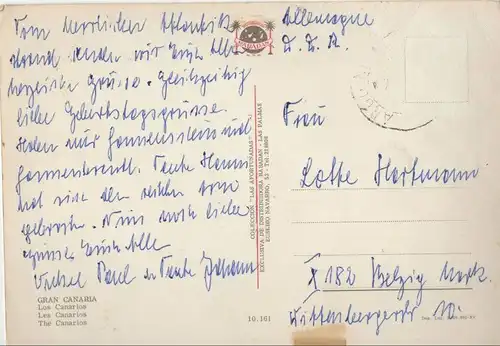 Vom herrlichen Atlantik
strand senden wir Euch alle
herzliche Grüsse. Gleichzeitig
liebe Geburtstagsgrüsse.
Haben nur Sonnenschein und
Tante Hanni
hat sich den
gebroch. Nun noch liebe
Grüsse Euch Alle
Onkel Paul u Tante Johann
GRAN CANARIA
Los Canarios
Les Canarios
The Canarios
10.161
NAGADAN
COLECCION "LAS AFORTUNADAS"
EXCLUSIVA DE DISTRIBUIDORA NAGADAN - LAS PALMAS
EUSEBIO NAVARRO, 52 - Tel. 
Allemagne
D. D. R.
Frau
Lotte Hartmann
X 182 Belzig Mark.
Wittenbergerstr 10.